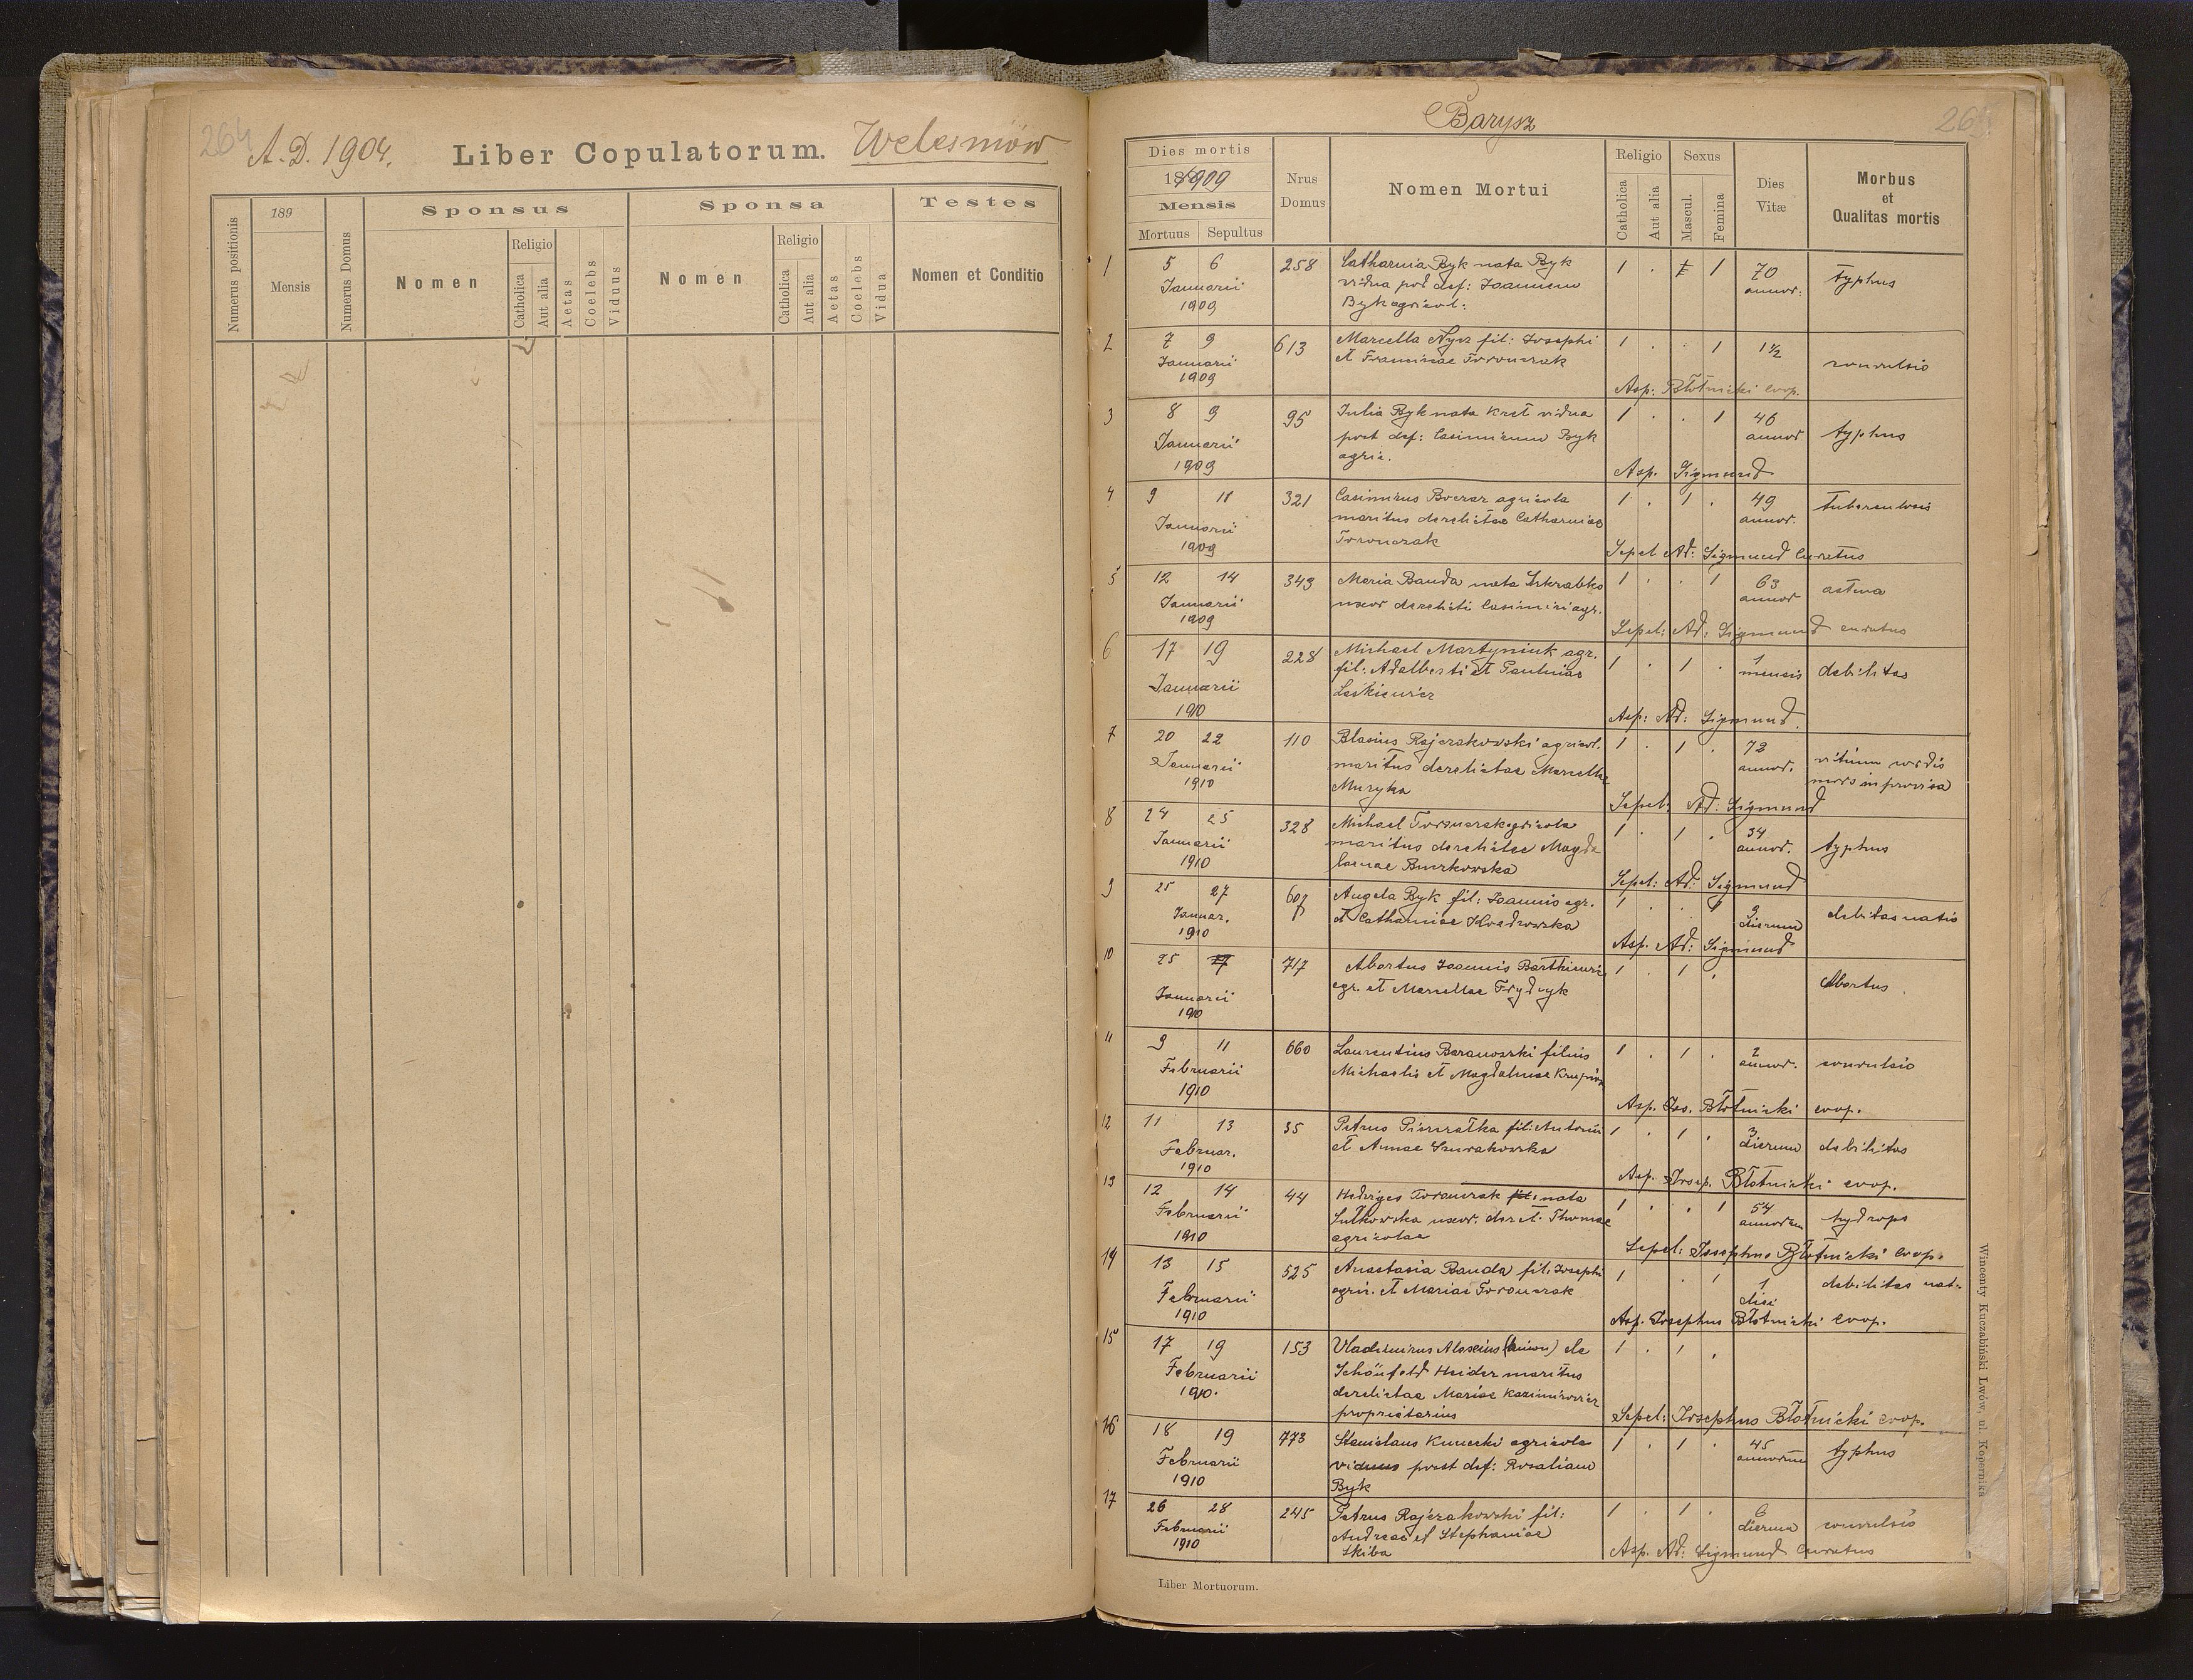 264
A. D. 1904. Liber Copulatorum. Welesniów
Numerus positionis
189
Mensis
Numerus Domus
Sponsus
Nomen
Religio
Catholica
Aut alia
Aetas
Coelebs
Viduus
Sponsa
Nomen
Religio
Catholica
Aut alia
Aetas
Coelebs
Vidua
Testes
Nomen et Conditio
Barysz
Dies mortis
1909
Mensis
Mortuus Sepultus
Nrus Domus
Nomen Mortui
Religio
Catholica
Aut alia
Sexus
Mascul.
Femina
Dies Vitæ
Morbus
et
Qualitas mortis
1 5 6 258 Catharina Byk nata Byk 1 . 1 70 typhus
Januarii vidua post def: Joannem annor.
1909 Byk agricol:
2 7 9 613 Marcella Nysz fil: Josephi 1 . . 1 1½ convulsio
Januarii et Franciscae Toronczak
1909 Asp: Błotnicki coop.
3 8 9 95 Julia Byk nata Kret vidua 1 . . 1 46 typhus
Januarii post def: Casimirum Byk annor
1909 agric. Asp. Sigmund
4 9 11 321 Casimirus Boczar agricola 1 . 1 . 49 tuberculosis
Januarii maritus derelictae Catharinae annor.
1909 Toronczak Sepel Ad: Sigmund Curatus
5 12 14 343 Maria Banda nata Iskrabko 1 . . 1 63 astma
Januarii uxor derelicti Casimiri agr. annor
1909 Sepel: Ad: Sigmund curatus
6 17 19 228 Michael Martyniuk agr. 1 . 1 . 1 debilitas
Januarii fil: Adalberti et Paulinae mensis
1910 Leskiewicz Asp: Ad: Sigmund.
7 20 22 110 Blasius Rajczakowski agricol. 1 . 1 . 72 vitium cordis
Januarii maritus derelictae Marcellae annor. mors improvisa
1910 Muzyka Sepel: Ad: Sigmund
8 24 25 328 Michael Toronczak agricola 1 . 1 . 34 typhus
Januarii maritus derelictae Magda annor.
1910 lenae Buczkowska Sepel: Ad: Sigmund
9 25 27 607 Angela Byk fil: Joannis agr. 1 . . 1 9 debitas natis
Januar. et Catharinae Kredrowska dierum
1910 Asp. Ad: Sigmund
10 25 27 717 Abortus Joannis Barthiewicz 1 . 1 . Abortus
Januarii agr. et Marcellae Frydryk
1910
11 9 11 660 Laurentius Baranowski filius 1 . 1 . 2 convulsio
Februarii Michaelis et Magdalenae annor.
1910 Asp. Jos. Błotnicki coop.
12 11 13 35 Petrus Pieczatka fil: Antonii 1 . 1 . 3 debilitas
Februar. et Annae Czurakowska dierum
1910 Asp. Josep. Błotnicki coop.
13 12 14 44 Hedviges Toronczak fil: nata 1 . . 1 54 hydrops
Februarii Sutkowska uxor. derel. Thomae annorum
1910 agricolae Sepel: Josephus Błotnicki coop.
14 13 15 525 Anastasia Banda fil: Josephi 1 . 1 1 debilitas nat.
Februarii agric. et Mariae Toronczak diei
1910 Asp. Josephus Błotnicki coop.
15 17 19 153 Vladimirus Aloseius de 1 . 1 .
Februarii Schönfeld Heider maritus
1910. derelictae Mariae Kazimirowicz
proprietarius Sepel: Josephus Błotnicki coop.
16 18 19 773 Stanislaus Kunecki agricola 1 . 1 . 45 typhus
Februarii viduus post def: Rosaliam annorum
1910 Byk
17 26 28 245 Petrus Rajczakowski fil: 1 . 1 . 6 convulsio
Februarii Andreae et Stephaniae dierum
1910 Skiba Asp. Ad: Sigmund Curatus
Liber Mortuorum.
Wincenty Kuczabiński Lwów, ul. Kopernika